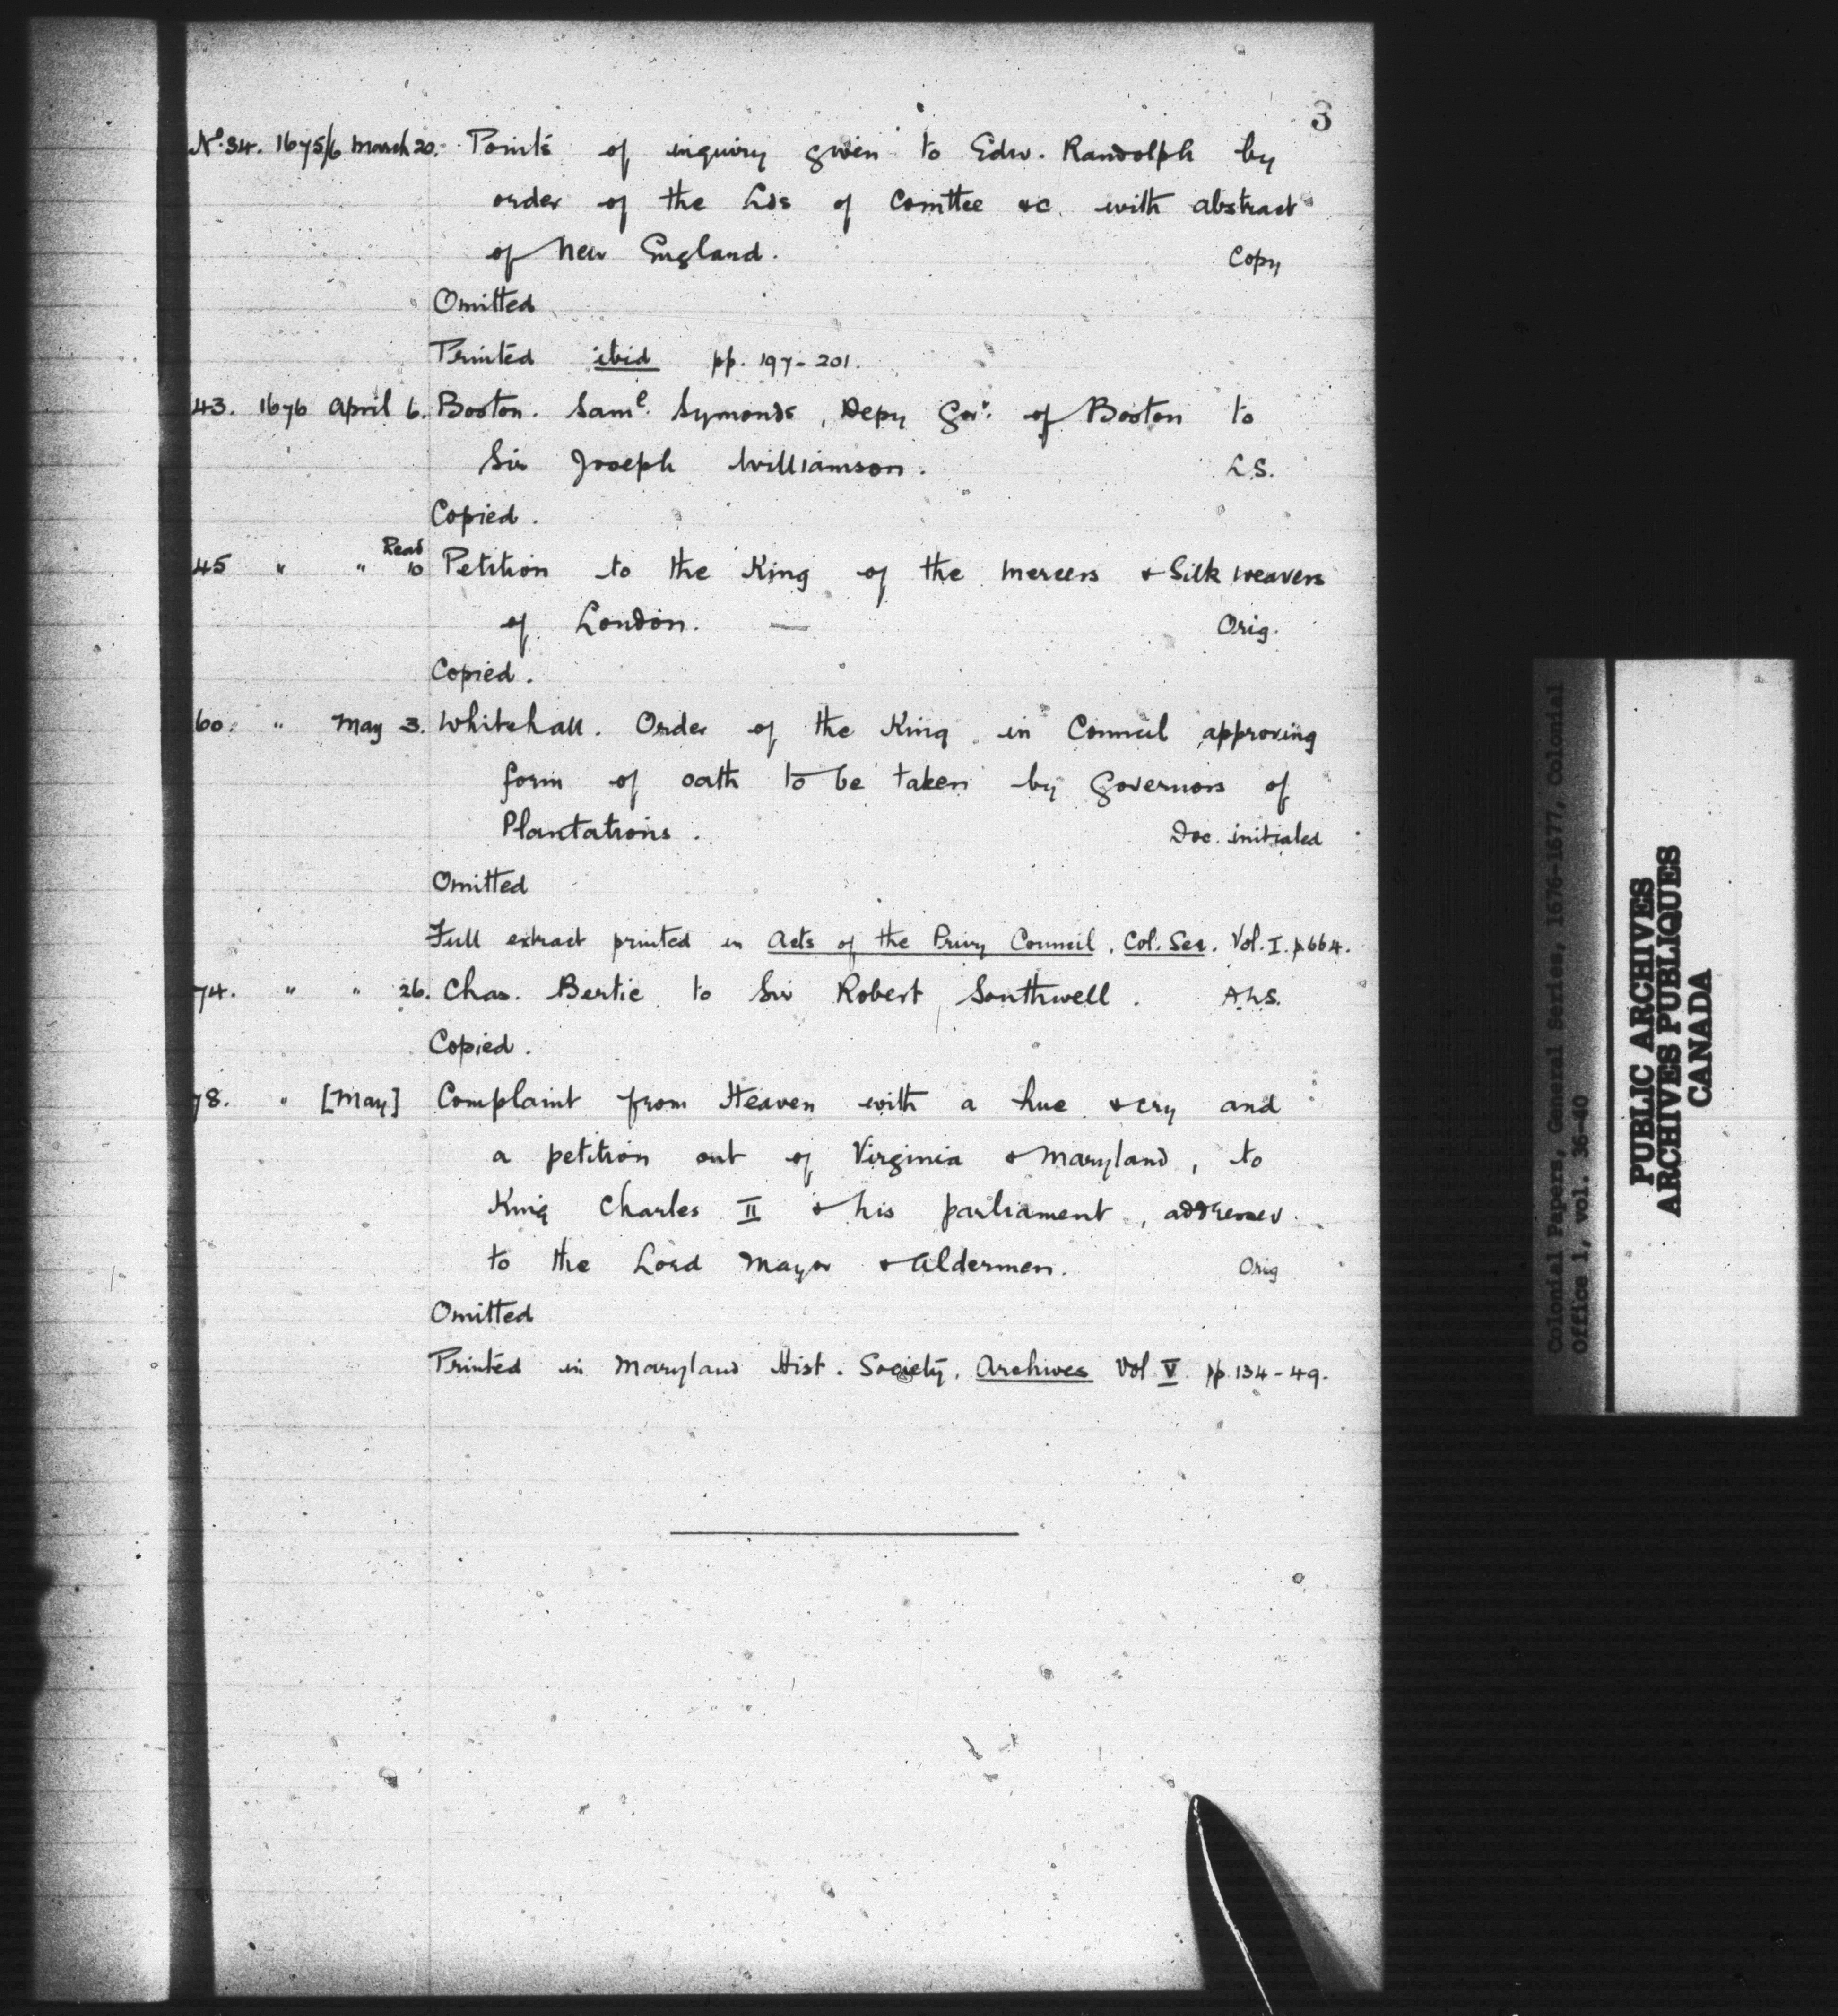 3
No. 34. 1675/6 March 20. Points of inquiry given to Edw. Randolph by
order of the Lds of Comttee &c. with abstract
of New England. Copy
Omitted
Printed ibid pp. 197-201.
43. 1676 April 6. Boston. Saml. Symonds, Depy Govr. of Boston to
Sir Joseph Williamson. L.S.
Copied.
45 " " Read 10 Petition to the King of the Mercers & Silk Weavers
of London. — Orig.
Copied.
60. " May 3. Whitehall. Order of the King in Council approving
form of oath to be taken by Governors of
Plantations. Doc. initialed
Omitted
Full extract printed in Acts of the Privy Council, Col. Ser. Vol. I. p 664.
74. " " 26. Chas. Bertie to Sir Robert Southwell. A.L.S.
Copied.
78. " [May] Complaint from Heaven with a hue & cry and
a petition out of Virginia & Maryland, to
King Charles II & his parliament, addressed
to the Lord Mayor & Aldermen. Orig
Omitted
Printed in Maryland Hist. Society. Archives Vol V. pp. 134-49.
Colonial Papers, General Series, 1676-1677, Colonial
Office 1, vol. 36-40
PUBLIC ARCHIVES
ARCHIVES PUBLIQUES
CANADA